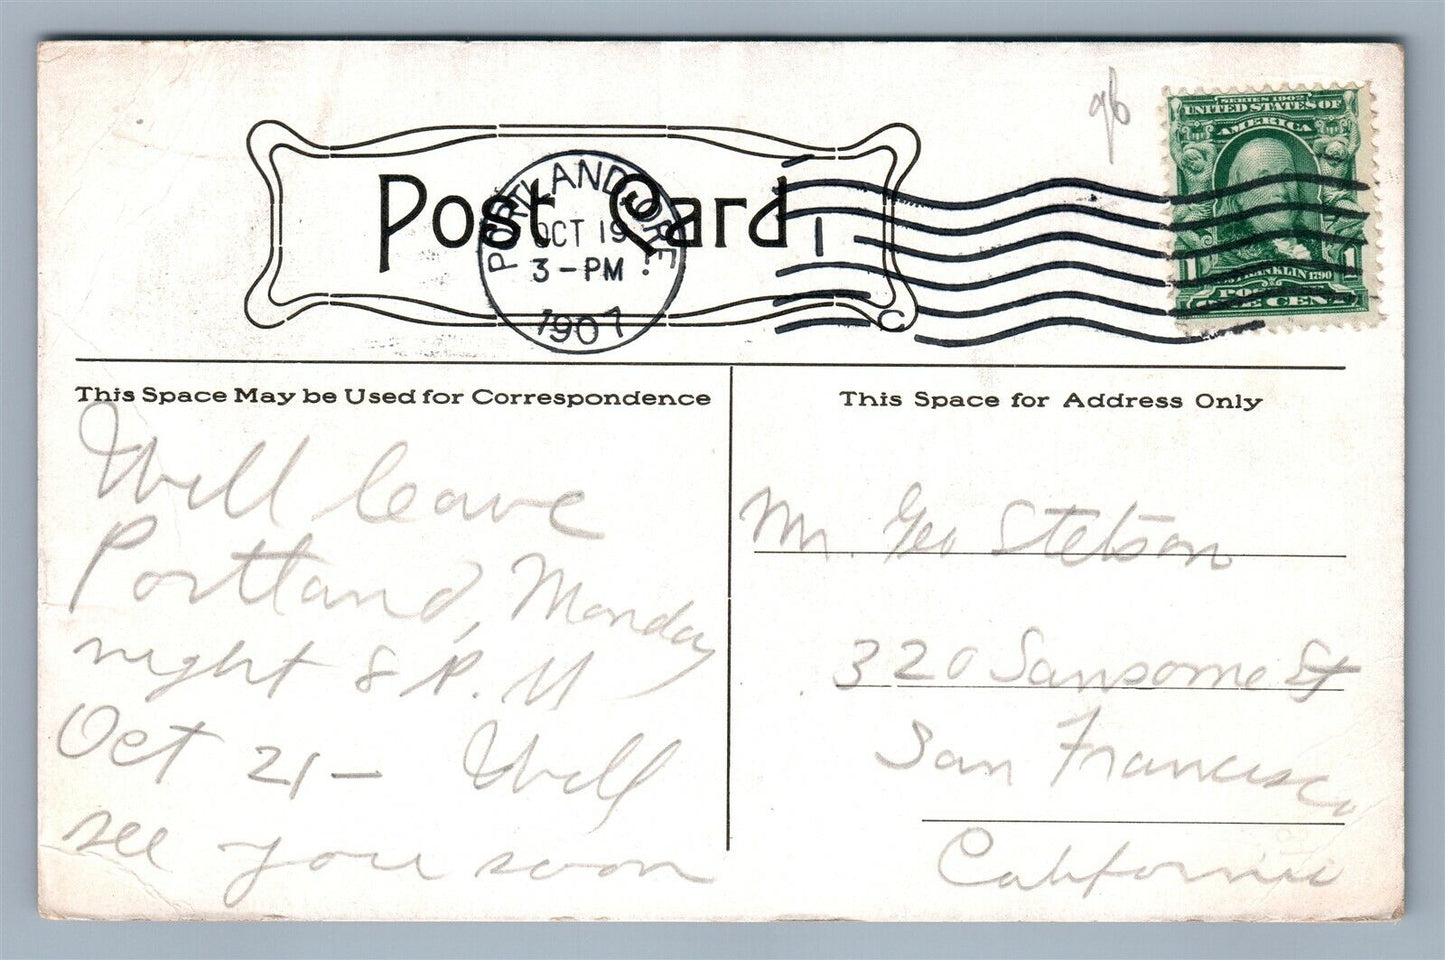 96
SERIES 1902
UNITED STATES OF
AMERICA
1 FRANKLIN 1790 1
Post Card
PORTLAND, ORE.
OCT 19
3-PM
1907
1
C
This Space May be Used for Correspondence
Will leave
Portland, Monday
night 8 P. M
Oct 21 - Will
see you soon
This Space for Address Only
Mr. Geo Stetson
320 Sansome St
San Francisco
California